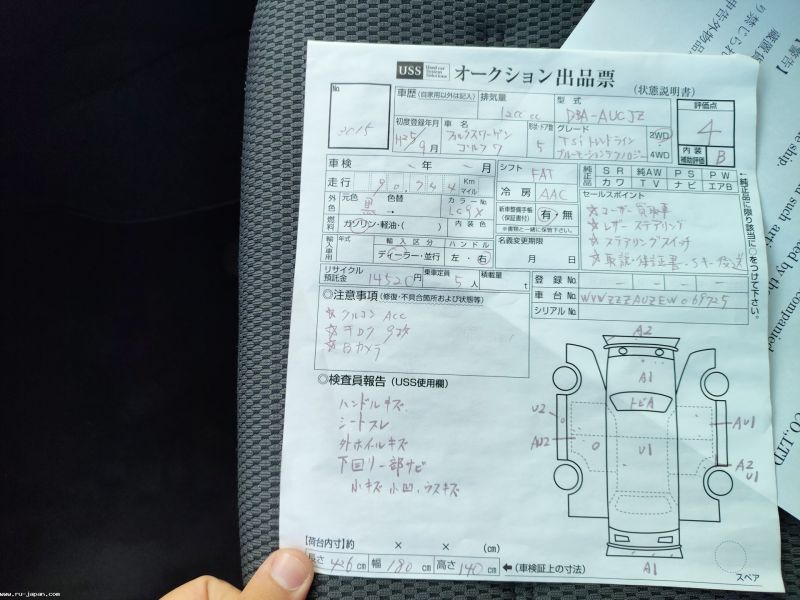 USS Used car System Solutions オークション出品票 (状態説明書)
No. 2015
車歴 (自家用以外は記入)
排気量 12cc cc
型式 DBA-AUCJZ
評価点 4
初度登録年月 H25/9月
車名 フォルクスワーゲン ゴルフ7
形状・ドア数 5
グレード TSiトレンドライン ブルーモーションテクノロジー
2WD 4WD
内装補助評価 B
車検 年 月
シフト FAT
純正品 SR 純AW PS PW
カワ TV ナビ エアB
走行 90,744 Km マイル
冷房 AAC
セールスポイント
外色 元色 黒 → 色替
カラーNo. LC9X
内装色
新車整備手帳 (保証書付) 有・無
※書類と一緒に保管下さい。
☆ユーザー買取車
☆レザーステアリング
☆ステアリングスイッチ
燃料 ガソリン・軽油・( )
輸入車用 年式 輸入区分 ディーラー・並行 ハンドル 左・右
名義変更期限 月 日
リサイクル預託金 14520円
乗車定員 5人
積載量 t
登録No.
車台No. WVWZZZAUZEW069725
シリアルNo.
↑純正品に限り該当に○をつけて下さい。
◎注意事項 (修復・不具合箇所および状態等)
☆クルコン ACC
☆Bカメラ
◎検査員報告 (USS使用欄)
ハンドルキズ
シートスレ
外ホイールキズ
下回り一部サビ
小キズ 小凹、ウスキズ
A2
A1
トビA
U2
AU2
U1
AU1
A2
U1
A1
スペア
【荷台内寸】約 × × (cm)
長さ 426 cm 幅 180 cm 高さ 140 cm ←(車検証上の寸法)
【警告】
e ship.
companied
CO.,LTD
www.ru-japan.com